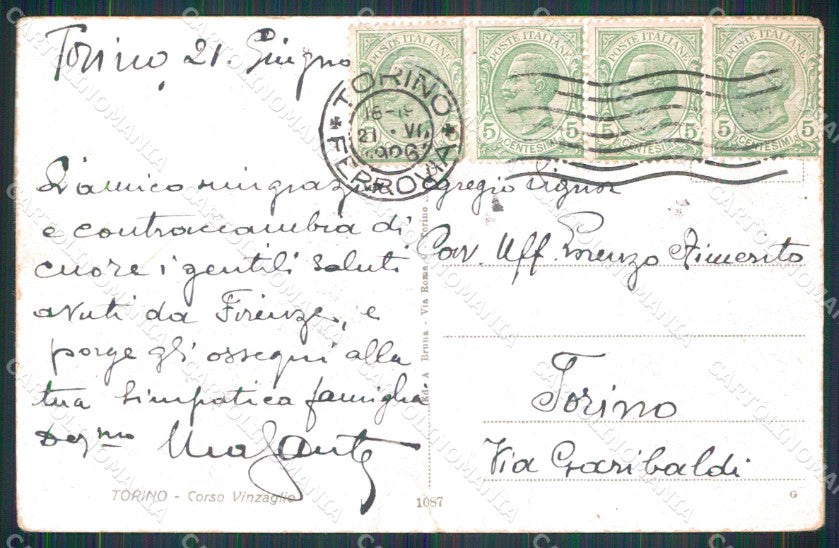 Torino 21. Giugno
POSTE ITALIANE
5 CENTESIMI 5
POSTE ITALIANE
5 CENTESIMI 5
POSTE ITALIANE
5 CENTESIMI 5
POSTE ITALIANE
5 CENTESIMI 5
TORINO
18-19
21 · VI
1926
FERROVIA
L'amico ringrazia
e contraccambia di
cuore i gentili saluti
avuti da Firenze, e
porge gli ossequi alla
tua simpatica famiglia
Egregio Signor
Cav. Uff. Lorenzo
Torino
Via Garibaldi
Ed. A. Bruna - Via Roma Torino
TORINO - Corso Vinzaglio
1087
G
CARTOLINOMANIA